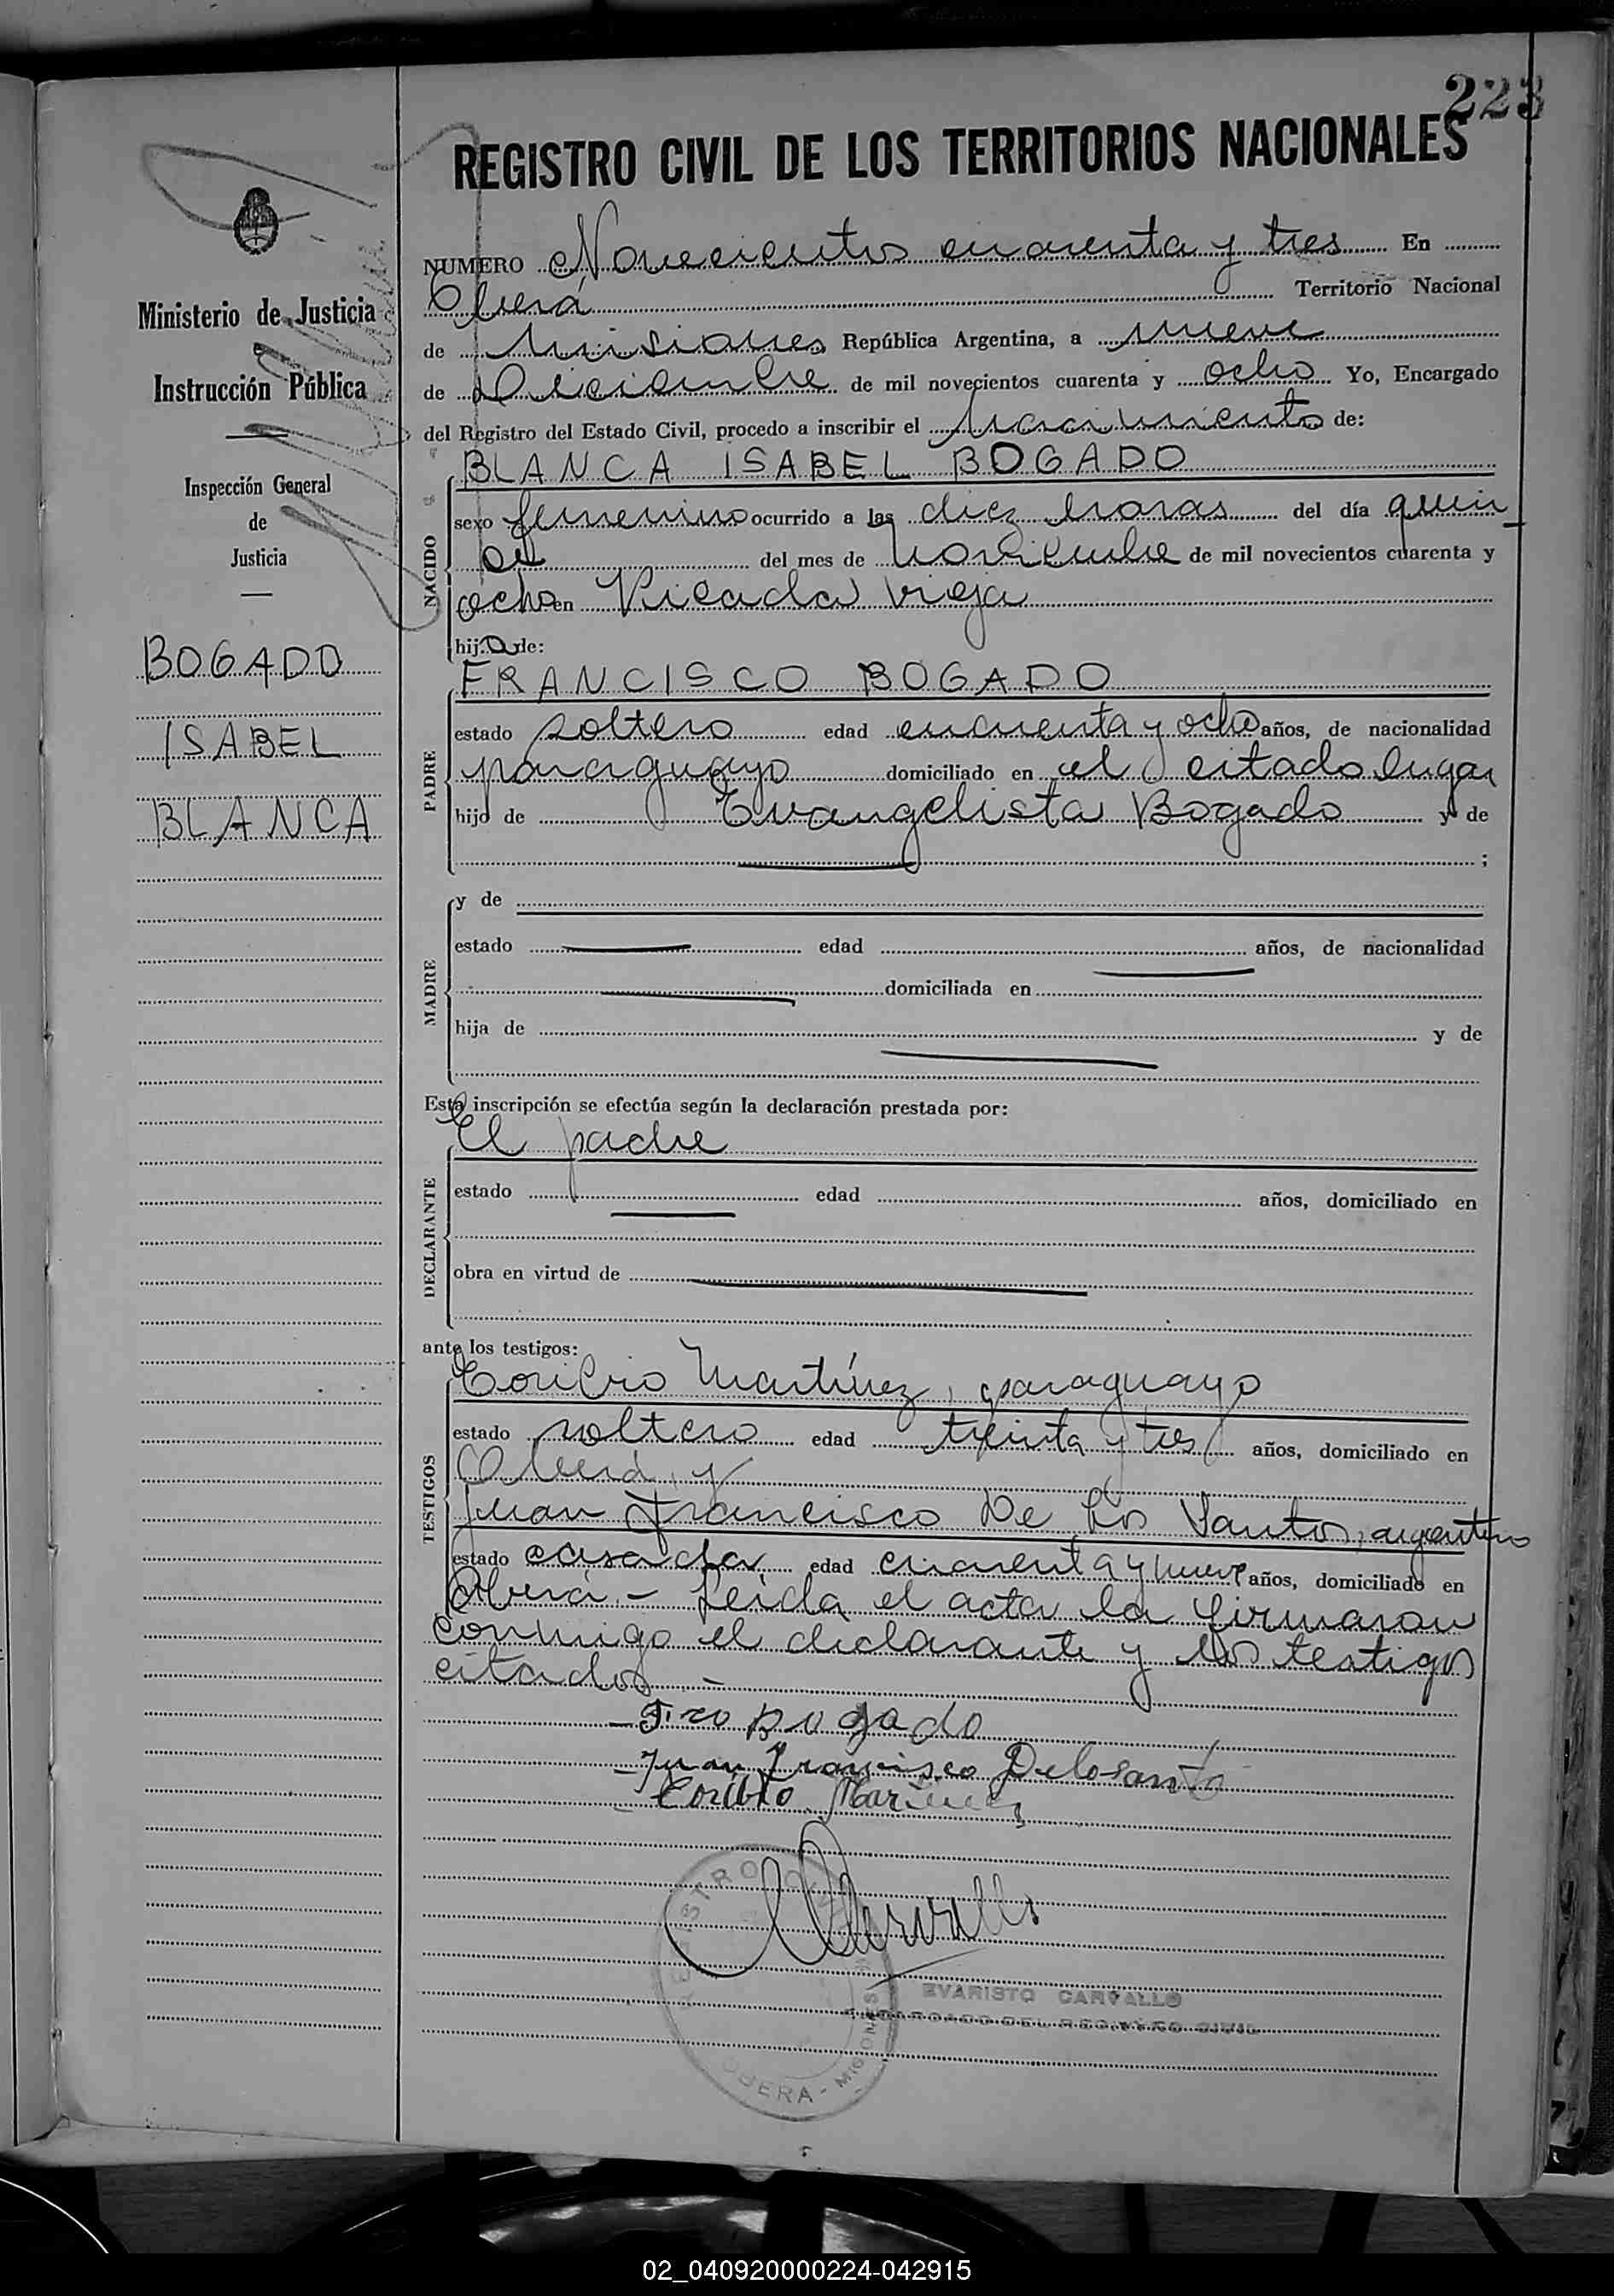 223
REGISTRO CIVIL DE LOS TERRITORIOS NACIONALES
NUMERO Novecientos cuarenta y tres En
Oberá Territorio Nacional
de Misiones República Argentina, a nueve
de Diciembre de mil novecientos cuarenta y ocho Yo, Encargado
del Registro del Estado Civil, procedo a inscribir el nacimiento de:
Ministerio de Justicia
e
Instrucción Pública
Inspección General
de
Justicia
BOGADO
ISABEL
BLANCA
NACIDO
BLANCA ISABEL BOGADO
sexo femenino ocurrido a las diez horas del día quin
ce del mes de noviembre de mil novecientos cuarenta y
ocho en Picada Vieja
hija de:
PADRE
FRANCISCO BOGADO
estado soltero edad cuarenta y ocho años, de nacionalidad
paraguayo domiciliado en el citado lugar
hijo de Evangelista Bogado y de
;
MADRE
y de
estado edad años, de nacionalidad
domiciliada en
hija de y de
Esta inscripción se efectúa según la declaración prestada por:
DECLARANTE
El padre
estado edad años, domiciliado en
obra en virtud de
ante los testigos:
TESTIGOS
Toribio Martínez, paraguayo
estado soltero edad treinta y tres años, domiciliado en
Oberá, y
Juan Francisco De Los Santos, argentino
estado casado, edad cuarenta y nueve años, domiciliado en
Oberá.- Leída el acta la firmaron
conmigo el declarante y los testigos
citados.-
Fco Bogado
Juan Francisco Delosanto
Toribio Martinez
EVARISTO CARVALLO
ENCARGADO DEL REGISTRO CIVIL
OBERA - MISIONES
02_040920000224-042915